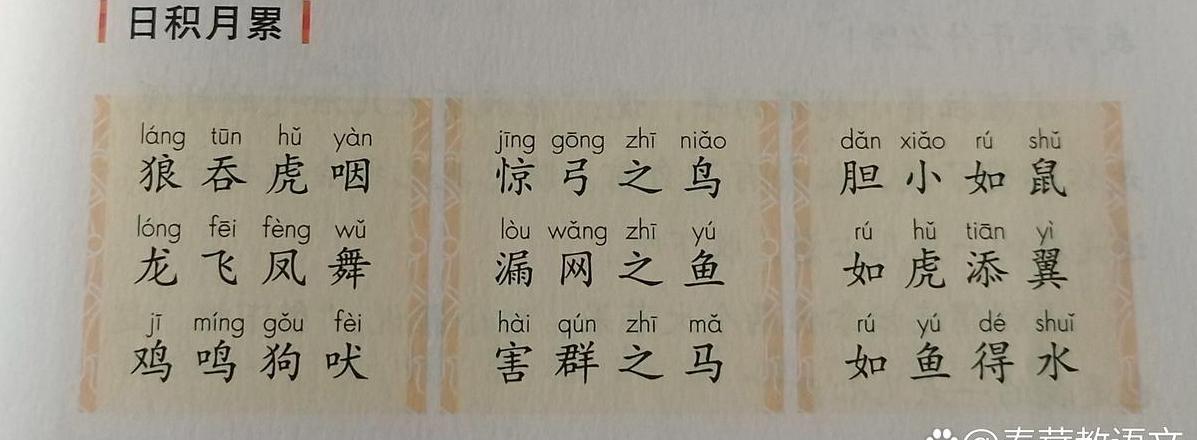 日积月累
láng tūn hǔ yàn
狼吞虎咽
lóng fēi fèng wǔ
龙飞凤舞
jī míng gǒu fèi
鸡鸣狗吠
jīng gōng zhī niǎo
惊弓之鸟
lòu wǎng zhī yú
漏网之鱼
hài qún zhī mǎ
害群之马
dǎn xiǎo rú shǔ
胆小如鼠
rú hǔ tiān yì
如虎添翼
rú yú dé shuǐ
如鱼得水